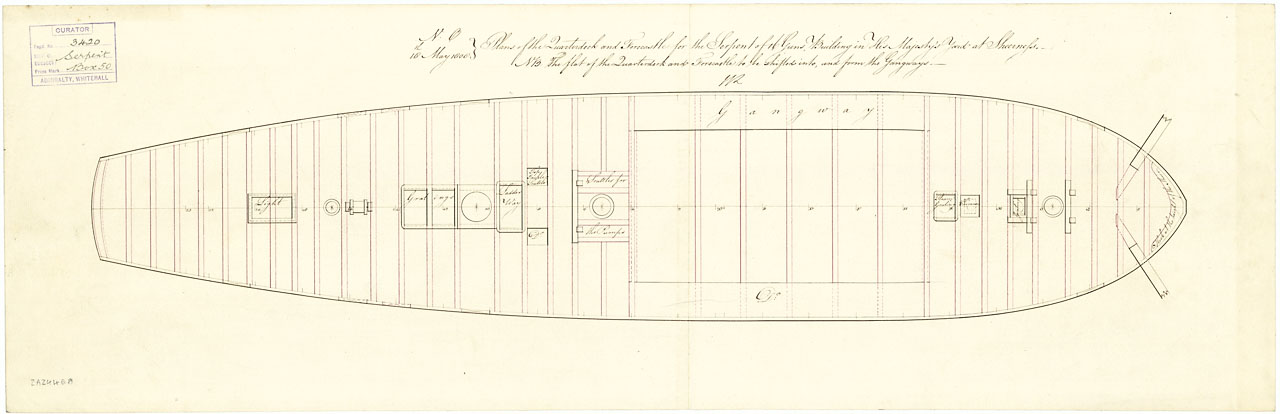 CURATOR
Regd. No. 3420
Serpent
Box 50
ADMIRALTY, WHITEHALL
N O
16 May 1800
Plans of the Quarterdeck and Forecastle for the Serpent of 16 Guns, Building in His Majesty's Yard at Sheerness.
NB. The flat of the Quarterdeck and Forecastle to be shifted into, and from the Gangways.
Gangway
Light
Gratings
Ladder Way
Scuttles for
the Pumps
Do
Do
ZAZ4468